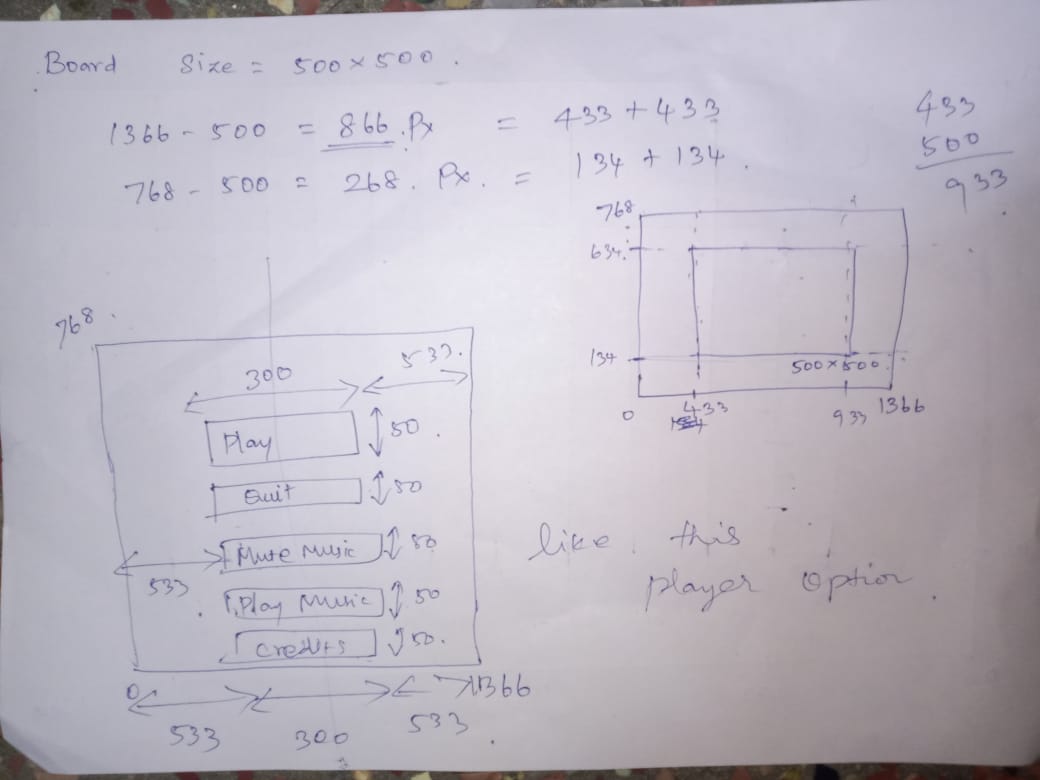 Board Size = 500 × 500.
1366 - 500 = 866.Px = 433 + 433
768 - 500 = 268. Px. = 134 + 134.
433
500
933
768
634
134
500×500
0 433 933 1366
768
533.
300
Play 50.
Quit 50
Mute Music 50
533
Play Music 50
Credits 50.
0 1366
533 300 533
like this
player option